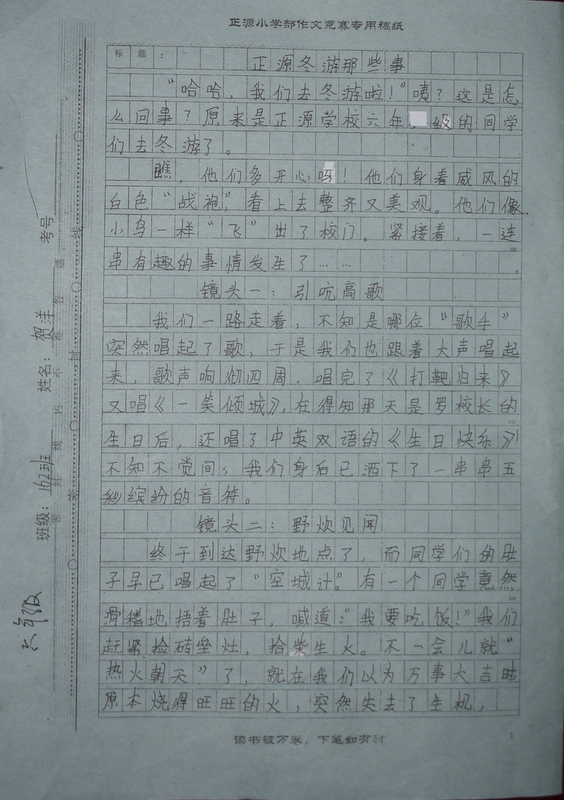 正源小学部作文竞赛专用稿纸
标题：
正源冬游那些事
“哈哈，我们去冬游啦！”咦？这是怎
么回事？原来是正源学校六年级的同学
们去冬游了。
瞧，他们多开心呀！他们身着威风的
白色“战袍”，看上去整齐又美观。他们像
小鸟一样“飞”出了校门。紧接着，一连
串有趣的事情发生了……
镜头一：引吭高歌
我们一路走着，不知是哪位“歌手”
突然唱起了歌，于是我们也跟着大声唱起
来，歌声响彻四周，唱完了《打靶归来》
又唱《一笑倾城》，在得知那天是罗校长的
生日后，还唱了中英双语的《生日快乐》
不知不觉间，我们身后已洒下了一串串五
彩缤纷的音符。
镜头二：野炊见闻
终于到达野炊地点了，而同学们的肚
子早已唱起了“空城计”。有一个同学竟然
滑稽地捂着肚子，喊道：“我要吃饭！”我们
赶紧捡砖垒灶，拾柴生火。不一会儿就“
热火朝天”了，就在我们以为万事大吉时
原本烧得旺旺的火，突然失去了生机，
读书破万卷，下笔如有神
1
考号
姓名：贺洋
班级：162班
六年级
密 封 线 内 不 答 题